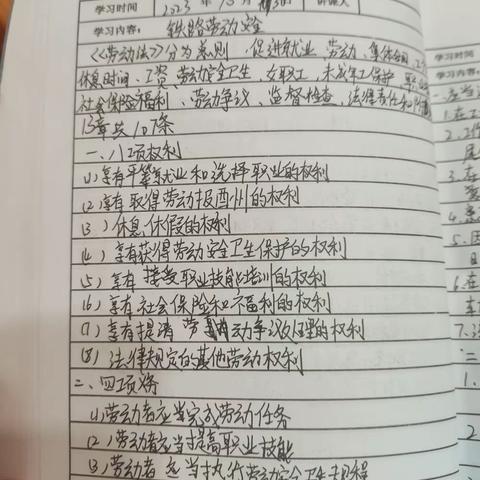 学习时间 2023年10月 讲课人
学习内容: 铁路劳动安全
《劳动法》分为总则 促进就业 劳动、集体合同、工作
休息时间、工资、劳动安全卫生、女职工,未成年工保护 职业
社会保险福利、劳动争议、监督检查、法律责任和附则
13章共107条
一、八项权利
(1)享有平等就业和选择职业的权利
(2)享有取得劳动报酬的权利
(3)休息、休假的权利
(4)享有获得劳动安全卫生保护的权利
(5)享有接受职业技能培训的权利
(6)享有社会保险和福利的权利
(7)享有提请劳动争议处理的权利
(8)法律规定的其他劳动权利
二、四项
(1)劳动者应当完成劳动任务
(2)劳动者应当提高职业技能
(3)劳动者应当执行劳动安全卫生规程
学习时间
学习内容:
1.在工
2.工作
3.在
5.因
6.在
二
1.
2